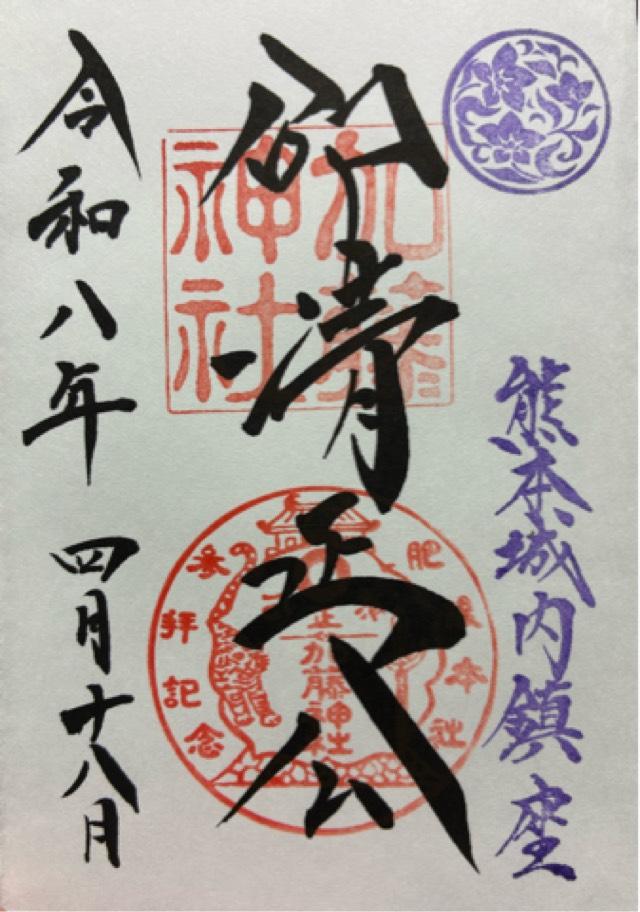 熊本城内鎮座
仰清正公
加藤
神社
肥後本社
加藤神社
参拝記念
令和八年 四月十八月